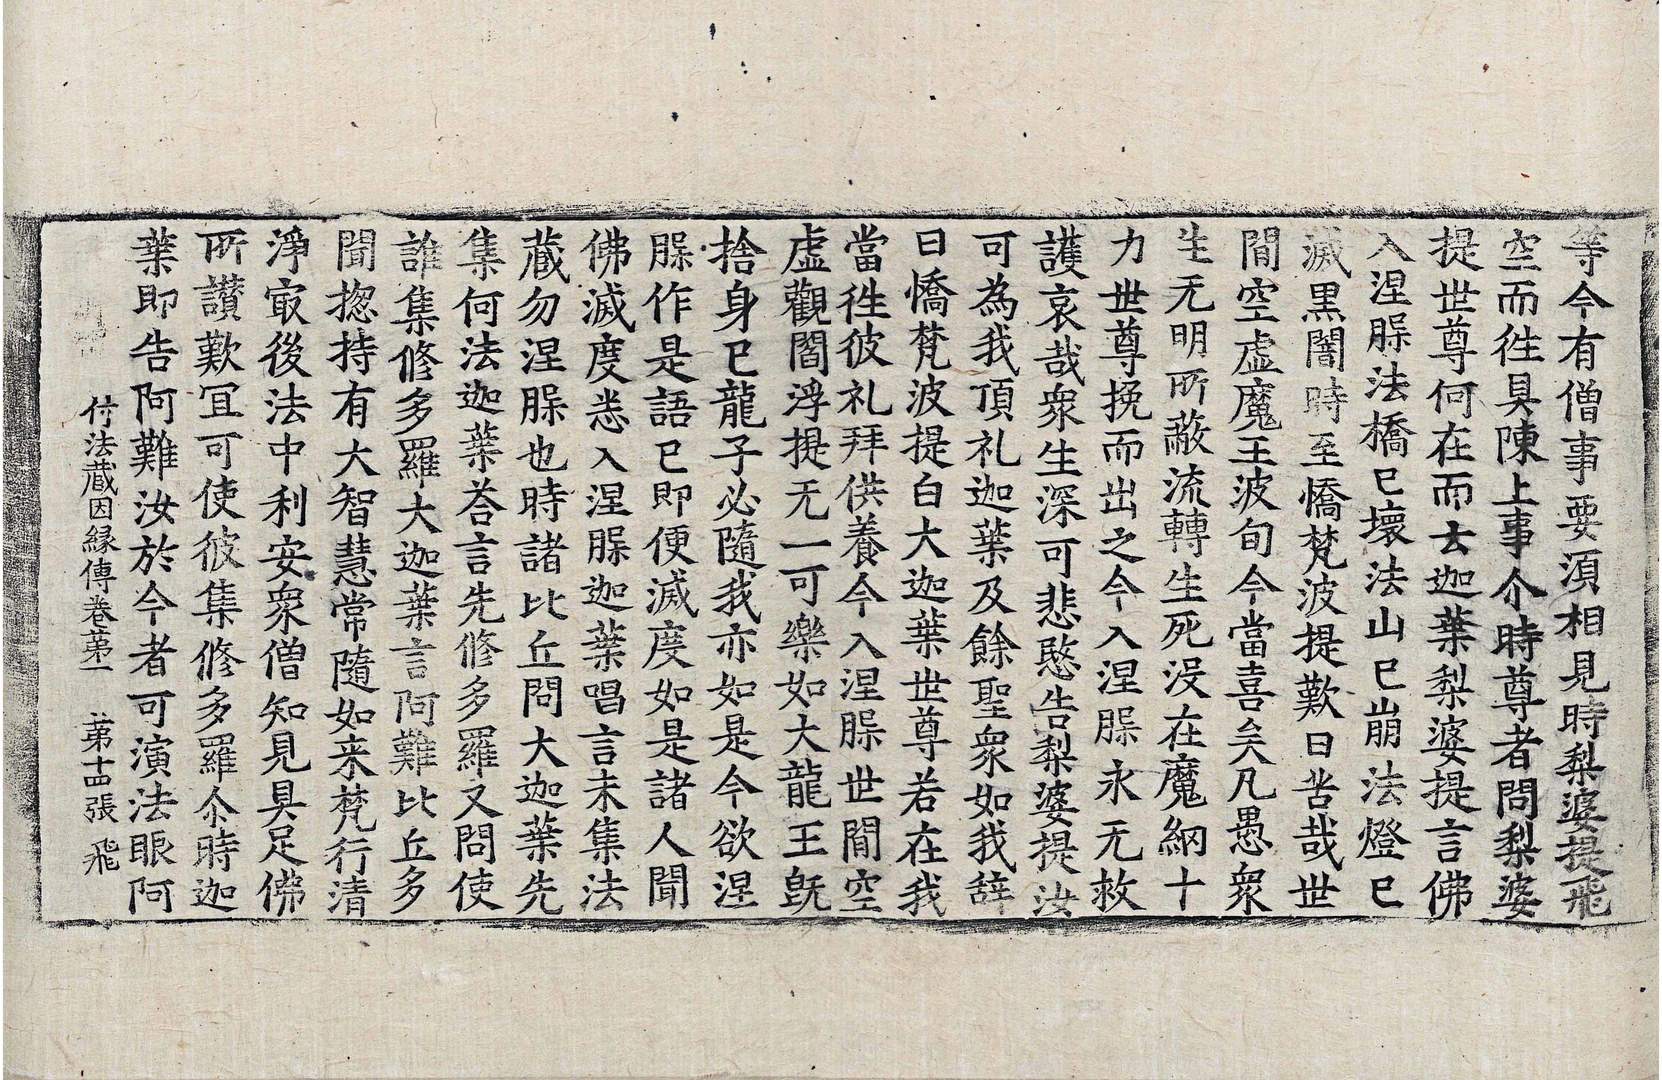 等今有僧事要湏相見時梨婆提飛
空而徃具陳上事尒時尊者問梨婆
提世尊何在而去迦葉梨婆提言佛
入涅槃法橋已壞法山已崩法燈已
滅黑闇時至憍梵波提歎曰苦哉世
間空虛魔王波旬今當喜矣凡愚衆
生无明所蔽流轉生死没在魔網十
力世尊挽而出之今入涅槃永无救
護哀哉衆生深可悲愍告梨婆提汝
可為我頂礼迦葉及餘聖衆如我辞
曰憍梵波提白大迦葉世尊若在我
當徃彼礼拜供養今入涅槃世間空
虛觀閻浮提无一可樂如大龍王旣
捨身已龍子必隨我亦如是今欲涅
槃作是語已即便滅度如是諸人聞
佛滅度悉入涅槃迦葉唱言未集法
藏勿涅槃也時諸比丘問大迦葉先
集何法迦葉荅言先修多羅又問使
誰集修多羅大迦葉言阿難比丘多
聞揔持有大智慧常隨如来梵行清
淨㝡後法中利安衆僧知見具足佛
所讃歎冝可使彼集修多羅尒時迦
葉即告阿難汝於今者可演法眼阿
付法藏因縁傳卷苐一　苐十四張　飛